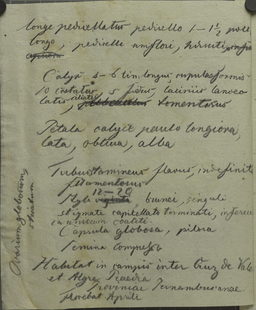 longe pedicellatus pedicello 1-1½ poll.
longo, pedicelli uniflori, hirsuti
Calyx 5-6 lin. longus cupulaeformis
10 costatus, 5 fidus, laciniis lanceo-
latis tomentosus
Petala calyce paulo longiora,
lata, obtusa, alba
Tubus stamineus flavus, indefinite
filamentosus
12-20
Styli brunei, singuli
stigmate capitellato terminati, inferne
in coaliti
Capsula globosa, pilosa
Semina compressa
Habitat in campis inter Cruz de
et
Provinciae Pernambucanae
florebat Aprili
Ovarium globosum,